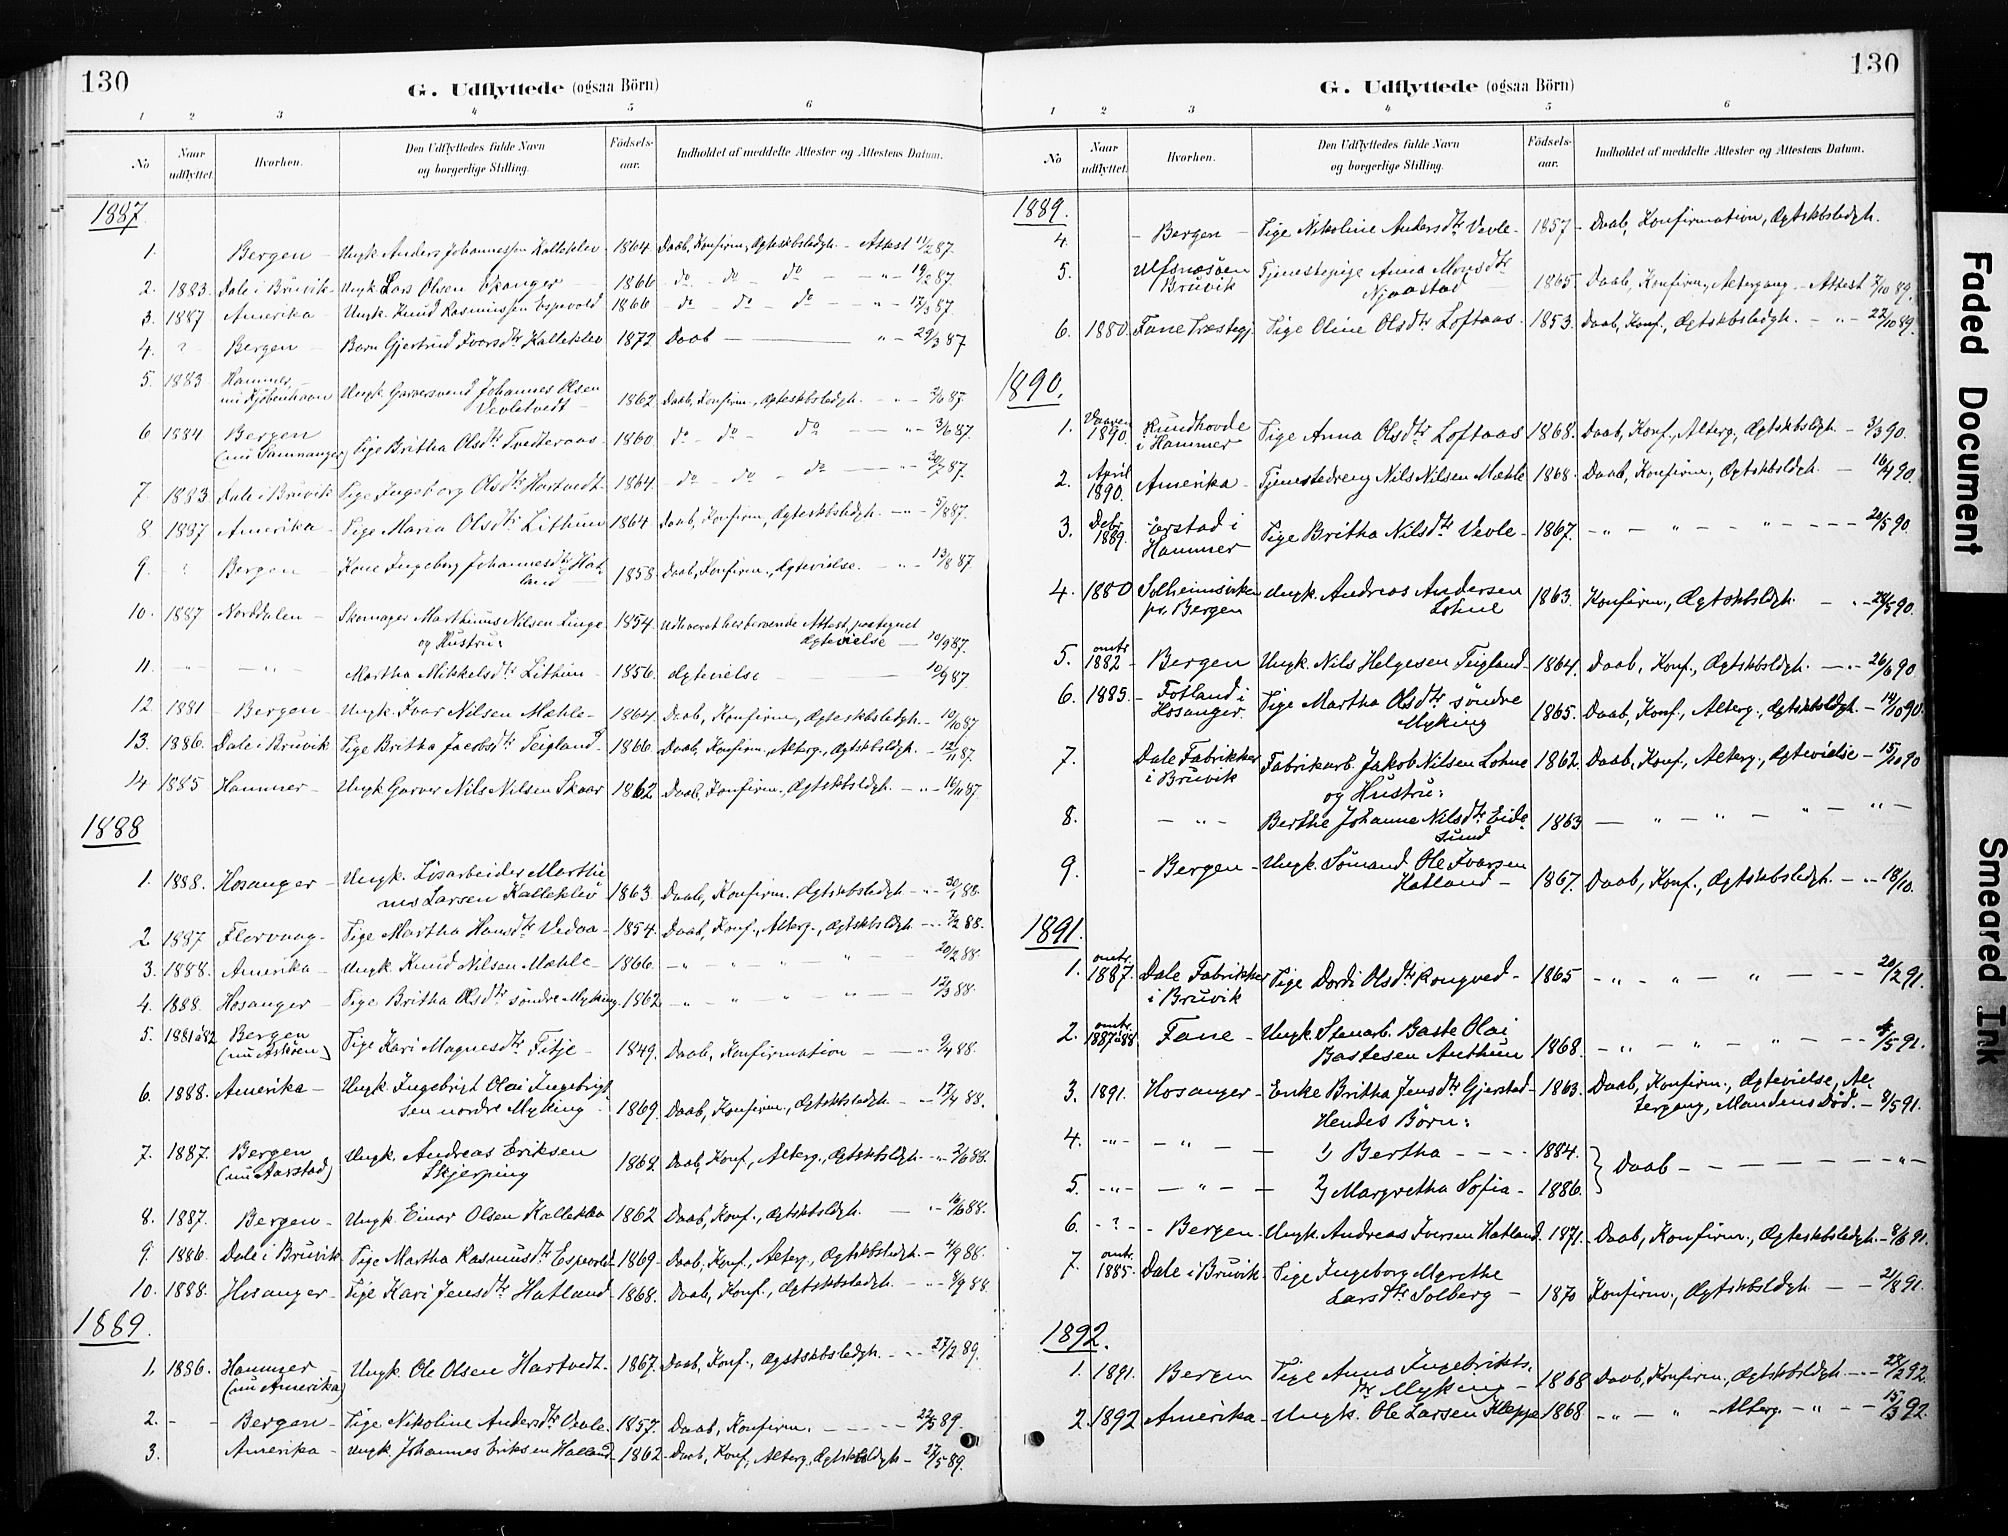 130
G. Udflyttede (ogsaa Börn)
1 2 3 4 5 6
No Naar udflyttet. Hvorhen. Den Udflyttedes fulde Navn og borgerlige Stilling. Födsels-aar. Indholdet af meddelte Attester og Attestens Datum.
1887.
1. Bergen - Ungk. Anders Johannessen Kalleklev - 1864 Daab, Konfirm., Ægteskbsledgh. - Attest 11/2 87.
2. 1883. Dale i Bruvik - Ungk. Lars Olsen Spanger 1866 do - do do - - „ - 19/2 87.
3. 1887 Amerika - Ungk. Knud Rasmussen Espevold 1866 - do - do - do - „ - 17/3 87.
4. ? - Bergen - Barn Gjertrud Ivarsdtr Kalleklev 1872 Daab - „ - 29/3 87
5. 1883 Hammer,
nu Kjøbenhavn Ungk. Garversvend Johannes Olsen
Vevletvedt - 1862 Daab, Konfirm., Ægteskbsledgh. - „ - 3/6 87.
6 1884 Bergen
(nu Samnanger) Pige Britha Olsdtr Tvedteraas - 1860 do - do - do - - „ 3/6 87.
7. 1883 Dale i Bruvik Pige Ingeborg Olsdtr Hartvedt - 1864 - do - do - do - „ - 30/7 87.
8 1887 - Amerika - Pige Maria Olsdtr Lithun 1864 Daab, Konfirm, Ægteskbsledgh. - „ - 5/8 87.
9. ? - Bergen - Kone Ingeborg Johannesdtr Hat-
land 1858 Daab, Konfirm., Ægtevielse. - „ - 13/8 87.
10. 1887 Norddalen - Skomager Marthinus Nilsen Linge - 1854. Udleveret herberoende Attest, paategnet
og Hustru: Ægtevielse - 10/9 87.
11. - „ - - „ - Martha Mikkelsdtr Lithun - 1856. Ægtevielse - 10/9 87.
12 1881 - Bergen - Ungk. Ivar Nilsen Mæhle - 1864. Daab, Konfirm, Ægteskbsledgh. - 10/10 87
13. 1886. Dale i Bruvik Pige Britha Jacobsdtr Teigland - 1866 Daab, Konfirm., Alterg., Ægtskbsldgh. - 12/11 87.
14 1885 Hammer - Ungk Garver Nils Nilsen Skaar 1862 Daab, Konfirm., Ægtskbsldgh. - „ - 16/11 87.
1888
1. 1888. Hosanger - Ungk. Løsarbeider Marthi
nus Larsen Kalleklev 1863 Daab, Konfirm. Ægtskbsledgh - „ - 30/1 88.
2 1887 Florvaag - Pige Martha Hansdtr Vedaa - 1854. Daab, Konf., Alterg., Ægtskbsldgh. - „ 7/2 88.
3. 1888. Amerika - Ungk. Knud Nilsen Mæhle - 1866. - „ - „ - „ - „ - 20/2 88.
4. 1888. Hosanger - Pige Britha Olsdtr söndre Myking 1862 - „ - „ - „ - „ - 12/3 88.
5. 1881 à 82 Bergen
(nu Askøen) Pige Kari Magnesdtr Fitje - 1849. Daab, Konfirmation - - „ 9/4 88.
6. 1888. Amerika - Ungk. Ingebrigt Olai Ingebrigt
sen nordre Myking - 1869. Daab, Konfirm., Ægtskbsledgh. - „ - 17/4 88.
7. 1887. Bergen
(nu Aarstad) Ungk. Andreas Eriksen
Skjerping 1862 Daab, Konf., Alterg., Ægtskbsldgh. - „ 2/6 88.
8. 1887. Bergen - Ungk. Einar Olsen Kalleklev 1862 Daab, Konf., Ægtskbsldgh. - „ 16/6 88.
9. 1886. Dale i Bruvik - Pige Martha Rasmusdtr Espevold - 1869 - Daab, Konf., Alterg., Ægtskbsldgh. - 4/9 88.
10. 1888. Hosanger - Pige Kari Jensdtr Hatland 1868. Daab, Konf., Ægtskbsledgh. - „ - 8/9 88.
1889.
1. 1886. Hammer -
(nu Amerika) Ungk. Ole Olsen Hartvedt - 1867. Daab, Konf., Ægtskbsledgh. - „ - 27/2 89.
2. - - Bergen - Pige Nikoline Andersdtr Vevle. 1857. Daab, Konfirm. - - - 22/5 89.
3. Amerika - Ungk. Johannes Eriksen Hatland - 1862 - Daab, Konf., Alterg., Ægtskbsldgh - 27/5 89.
130
G. Udflyttede (ogsaa Börn)
1 2 3 4 5 6
No Naar udflyttet. Hvorhen. Den Udflyttedes fulde Navn og borgerlige Stilling. Födsels-aar. Indholdet af meddelte Attester og Attestens Datum.
1889.
4. - Bergen - Pige Nikoline Andersdtr Vevle - 1857 - Daab, Konfirmation, Ægtskbsledgh.
5. Ulfsnæsøen
Bruvik Tjenestepige Anna Monsdtr
Njaastad 1865. Daab, Konfirm., Altergang - Attest 7/10 89.
6. 1880. Fane Træstegj. Pige Oline Olsdtr Loftaas 1853. Daab, Konf., Ægtskbsledgh. - „ - 22/10 89.
1890.
1. Vaaren
1890. Rundhovde
i Hammer Pige Anna Olsdtr Loftaas 1868. Daab, Konf., Alterg., Ægtskbsldgh - 3/3 90.
2. April
1890. Amerika - Tjenestedreng Nils Nilsen Mæhle 1868. Daab, Konfirm., Ægtskbsldgh. - 16/4 90.
3. Debr.
1889. Erstad i
Hammer Pige Britha Nilsdtr Vevle - 1867. - „ - „ - „ - - - 20/5 90.
4. 1880 Solheimsviken
pr. Bergen Ungk. Andreas Andersen
Lohne 1863. Konfirm., Ægtskbsldgh. - „ - 28/5 90.
5. omtr.
1882 - Bergen Ungk. Nils Helgesen Teigland - 1864. Daab, Konf., Ægtskbsldgh. - „ - 26/6 90.
6. 1885. - Fotland i
Hosanger. Pige Martha Olsdtr söndre
Myking 1865. Daab, Konf., Alterg., Ægtskbsldgh. - 14/10 90.
7. Dale Fabrikker
i Bruvik Fabrikarb. Jakob Nilsen Lohne 1862. Daab, Konf., Alterg., Ægtevielse - 15/10 90
og Hustru:
8. - „ - Berthe Johanne Nilsdtr Eide
sund 1863 - „ - „ - „ - „ -
9. - Bergen - Ungk. Sömand Ole Ivarsen
Hatland - 1867. Daab, Konf., Ægtskbsledgh. - „ - 18/10.
1891.
1. omtr.
1887. Dale Fabrikker
i Bruvik Pige Dordi Olsdtr Rongved - 1865 - „ - „ - „ - - 20/2 91.
2. omtr.
1887 à 88 Fane - Ungk. Stenarb. Baste Olai
Bastesen Anthun 1868. - „ - „ - „ - - 4/5 91.
3. 1891. Hosanger - Enke Britha Jensdtr Gjerstad - 1863. Daab, Konfirm., Ægtevielse, Al-
tergang, Mandens Död. - 8/5 91.
Hendes Börn:
4. - „ - - „ - 1) Bertha - - - - 1884. } Daab - - - - - „ -
5. - „ - - „ - 2) Margretha Sofia - 1886.
6. - ? - - Bergen Ungk. Andreas Iversen Hatland. 1871. - Daab, Konfirm., Ægteskbsledgh. - 8/6 91.
7 omtr.
1885. Dale i Bruvik - Pige Ingeborg Merethe
Larsdtr Solberg - 1870 Konfirm., Ægtskbsldgh - 21/8 91.
1892.
1. 1891. Bergen Pige Anna Ingebrikts.
dtr Myking - 1868 Daab, Konfirm., Ægtskbsldgh. - „ - 27/2 92.
2. 1892 Amerika - Ungk. Ole Larsen Kleppe 1868 - „ - „ - Alterg. - „ - 15/3 92.
Faded Document
Smeared Ink